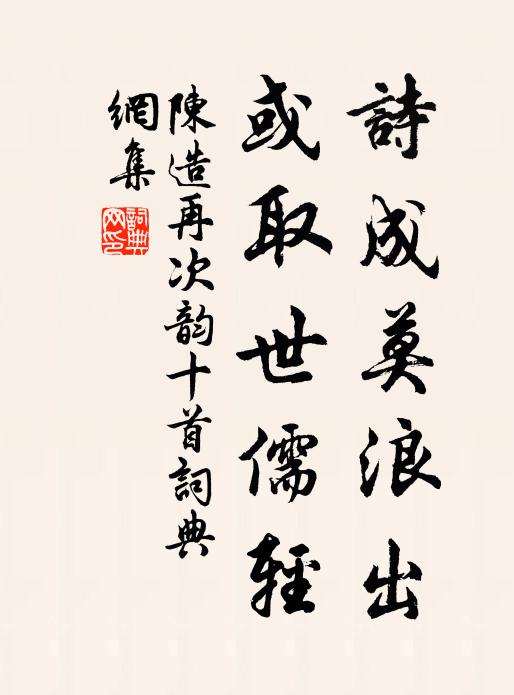 詩成莫浪出
或取世儒輕
陳造再次韵十首詞典
網集
詞典
网印